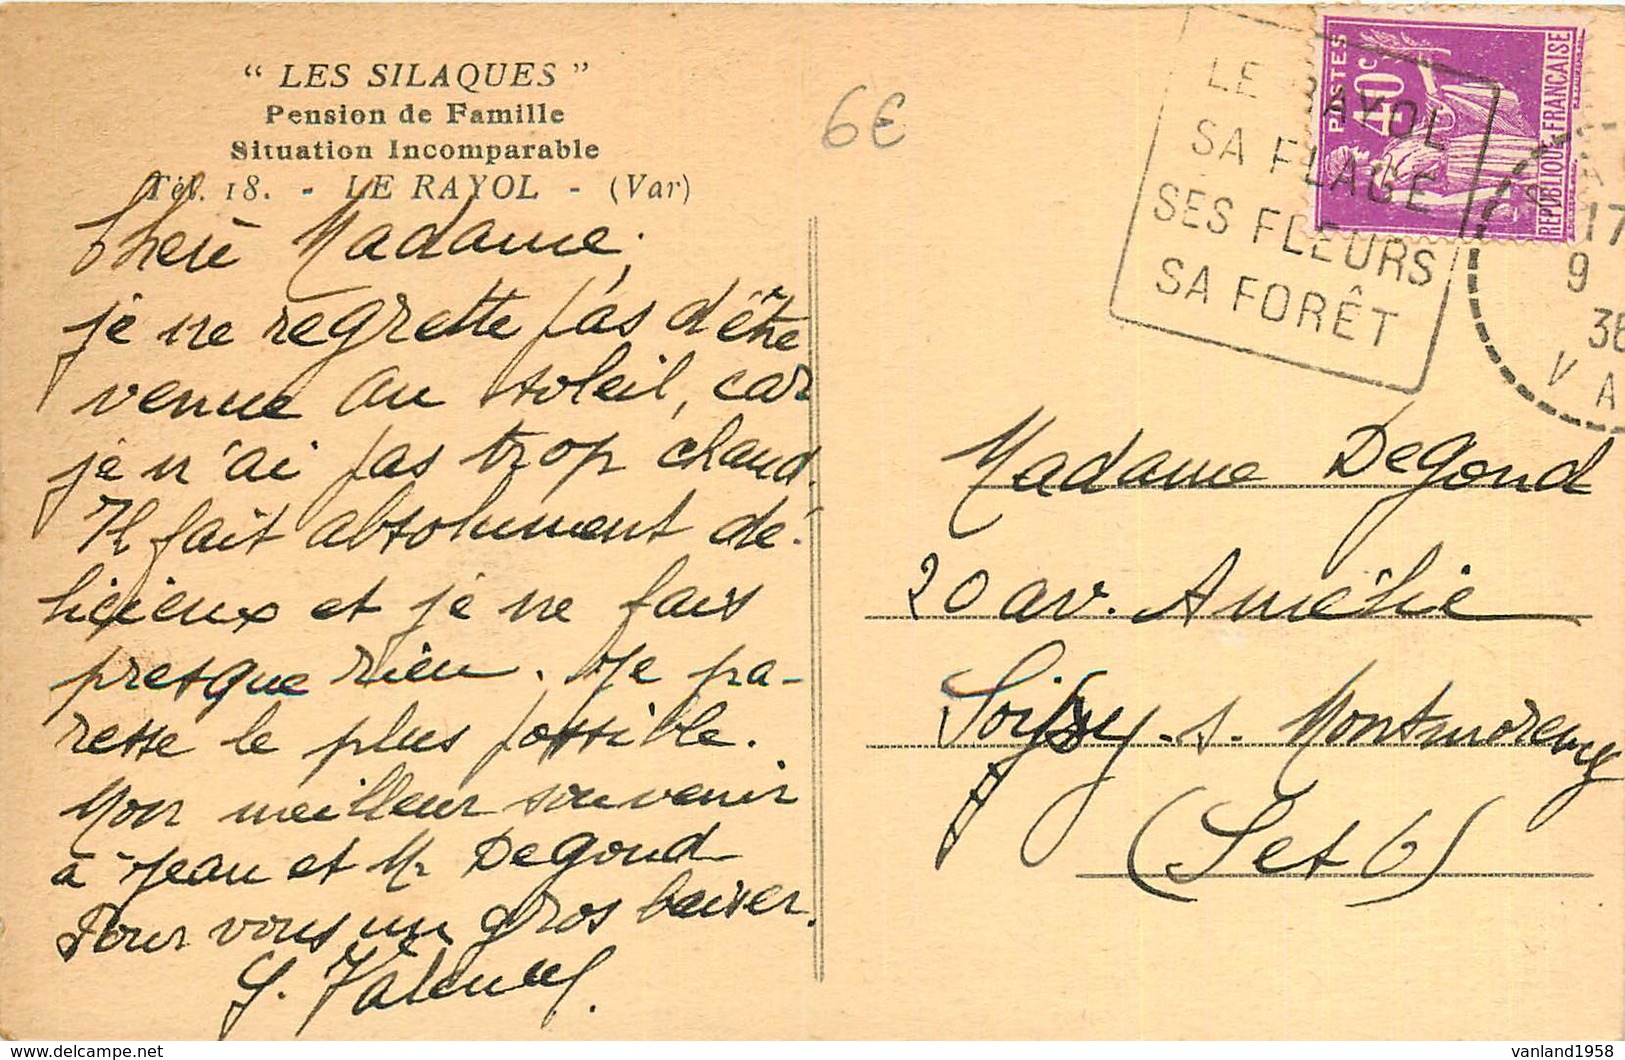 “ LES SILAQUES ”
Pension de Famille
Situation Incomparable
Tél. 18. - LE RAYOL - (Var)
Chère Madame,
je ne regrette pas d'être
venue au soleil, car
je n'ai pas trop chaud.
Il fait absolument dé-
licieux et je ne fais
presque rien. Je pa-
resse le plus possible.
Mon meilleur souvenir
à Jean et Mr Degond
Pour vous un gros baiser.
6€
LE RAYOL
SA PLAGE
SES FLEURS
SA FORÊT
POSTES
40c
REPUBLIQUE FRANÇAISE
17
9
36
VA
Madame Degond
20 av. Amélie
Soisy-s-Montmorency
(Set O)
vanland1958